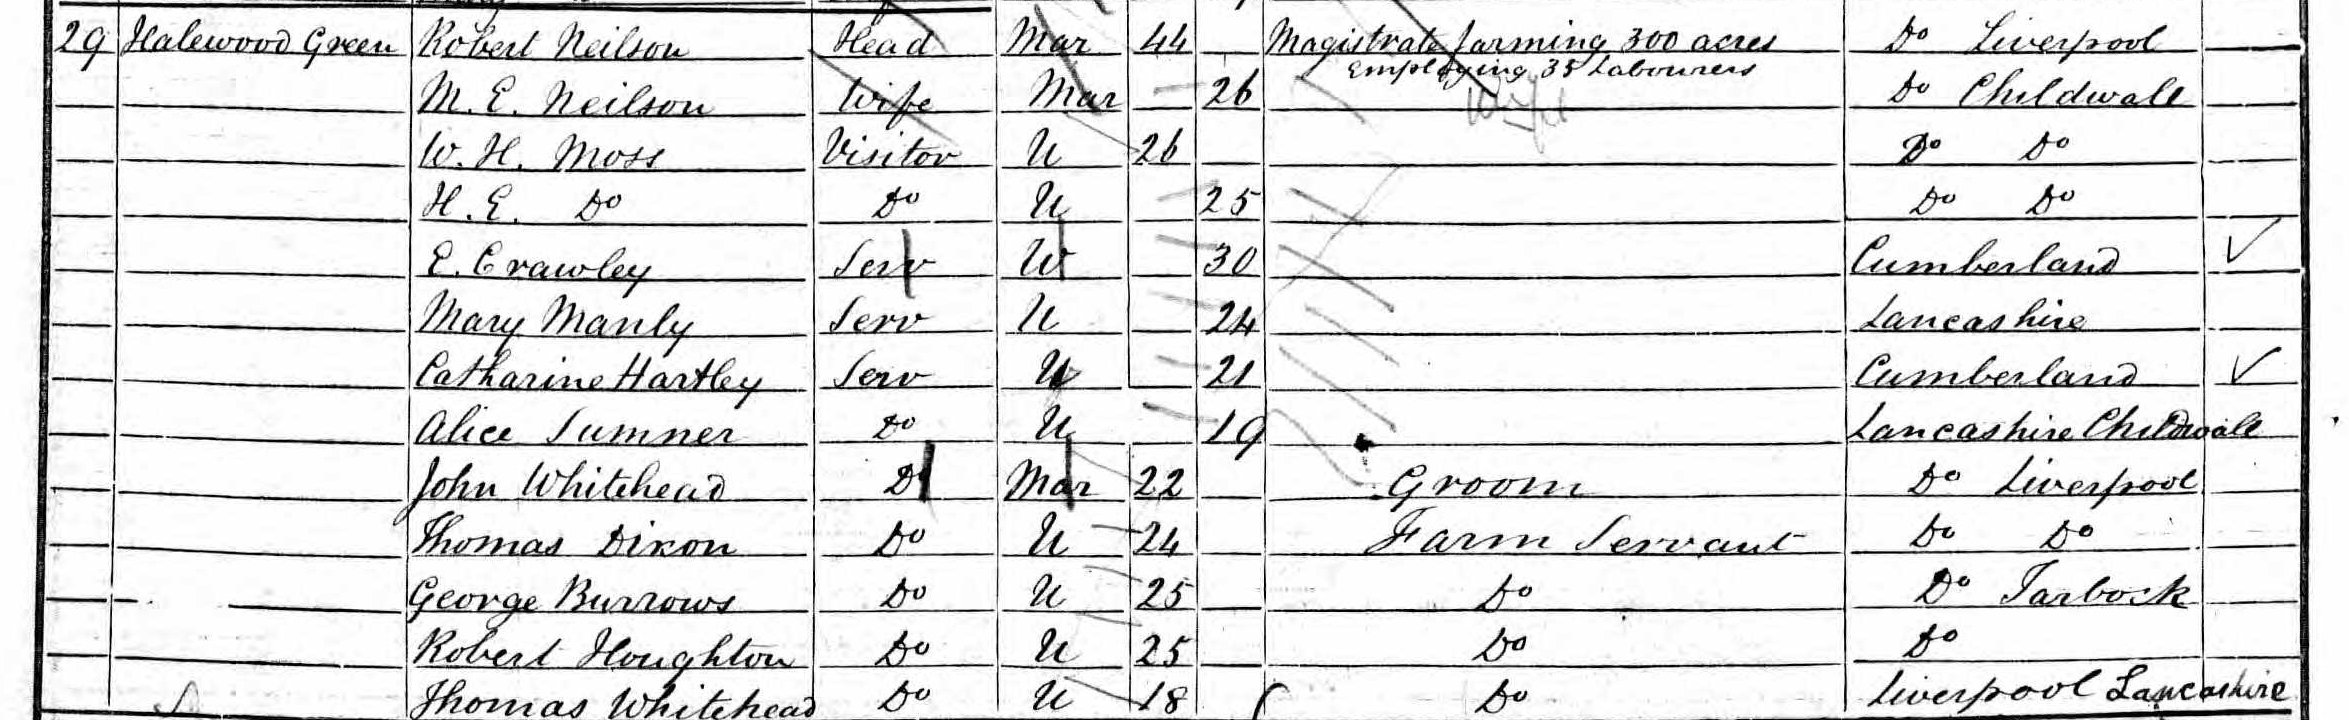 29 Halewood Green Robert Neilson Head Mar 44 Magistrate farming 300 acres Do Liverpool
Employing 35 Labourers
M. E. Neilson Wife Mar 26 Wife Do Childwall
W. H. Moss Visitor U 26 Do Do
H. E. Do Do U 25 Do Do
E. Crawley Serv W 30 Cumberland ✓
Mary Manly Serv U 24 Lancashire
Catharine Hartley Serv U 21 Cumberland ✓
Alice Sumner Do U 19 Lancashire Childwall
John Whitehead Do Mar 22 Groom Do Liverpool
Thomas Dixon Do U 24 Farm Servant Do Do
George Burrows Do U 25 Do Do Tarbock
Robert Houghton Do U 25 Do Do
Thomas Whitehead Do U 18 Do Liverpool Lancashire